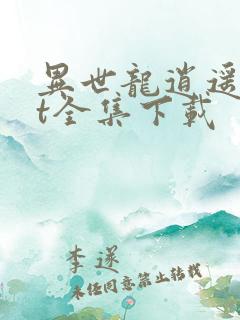 異世龍逍遥
t全集下載
李逆
未任同意禁止转载